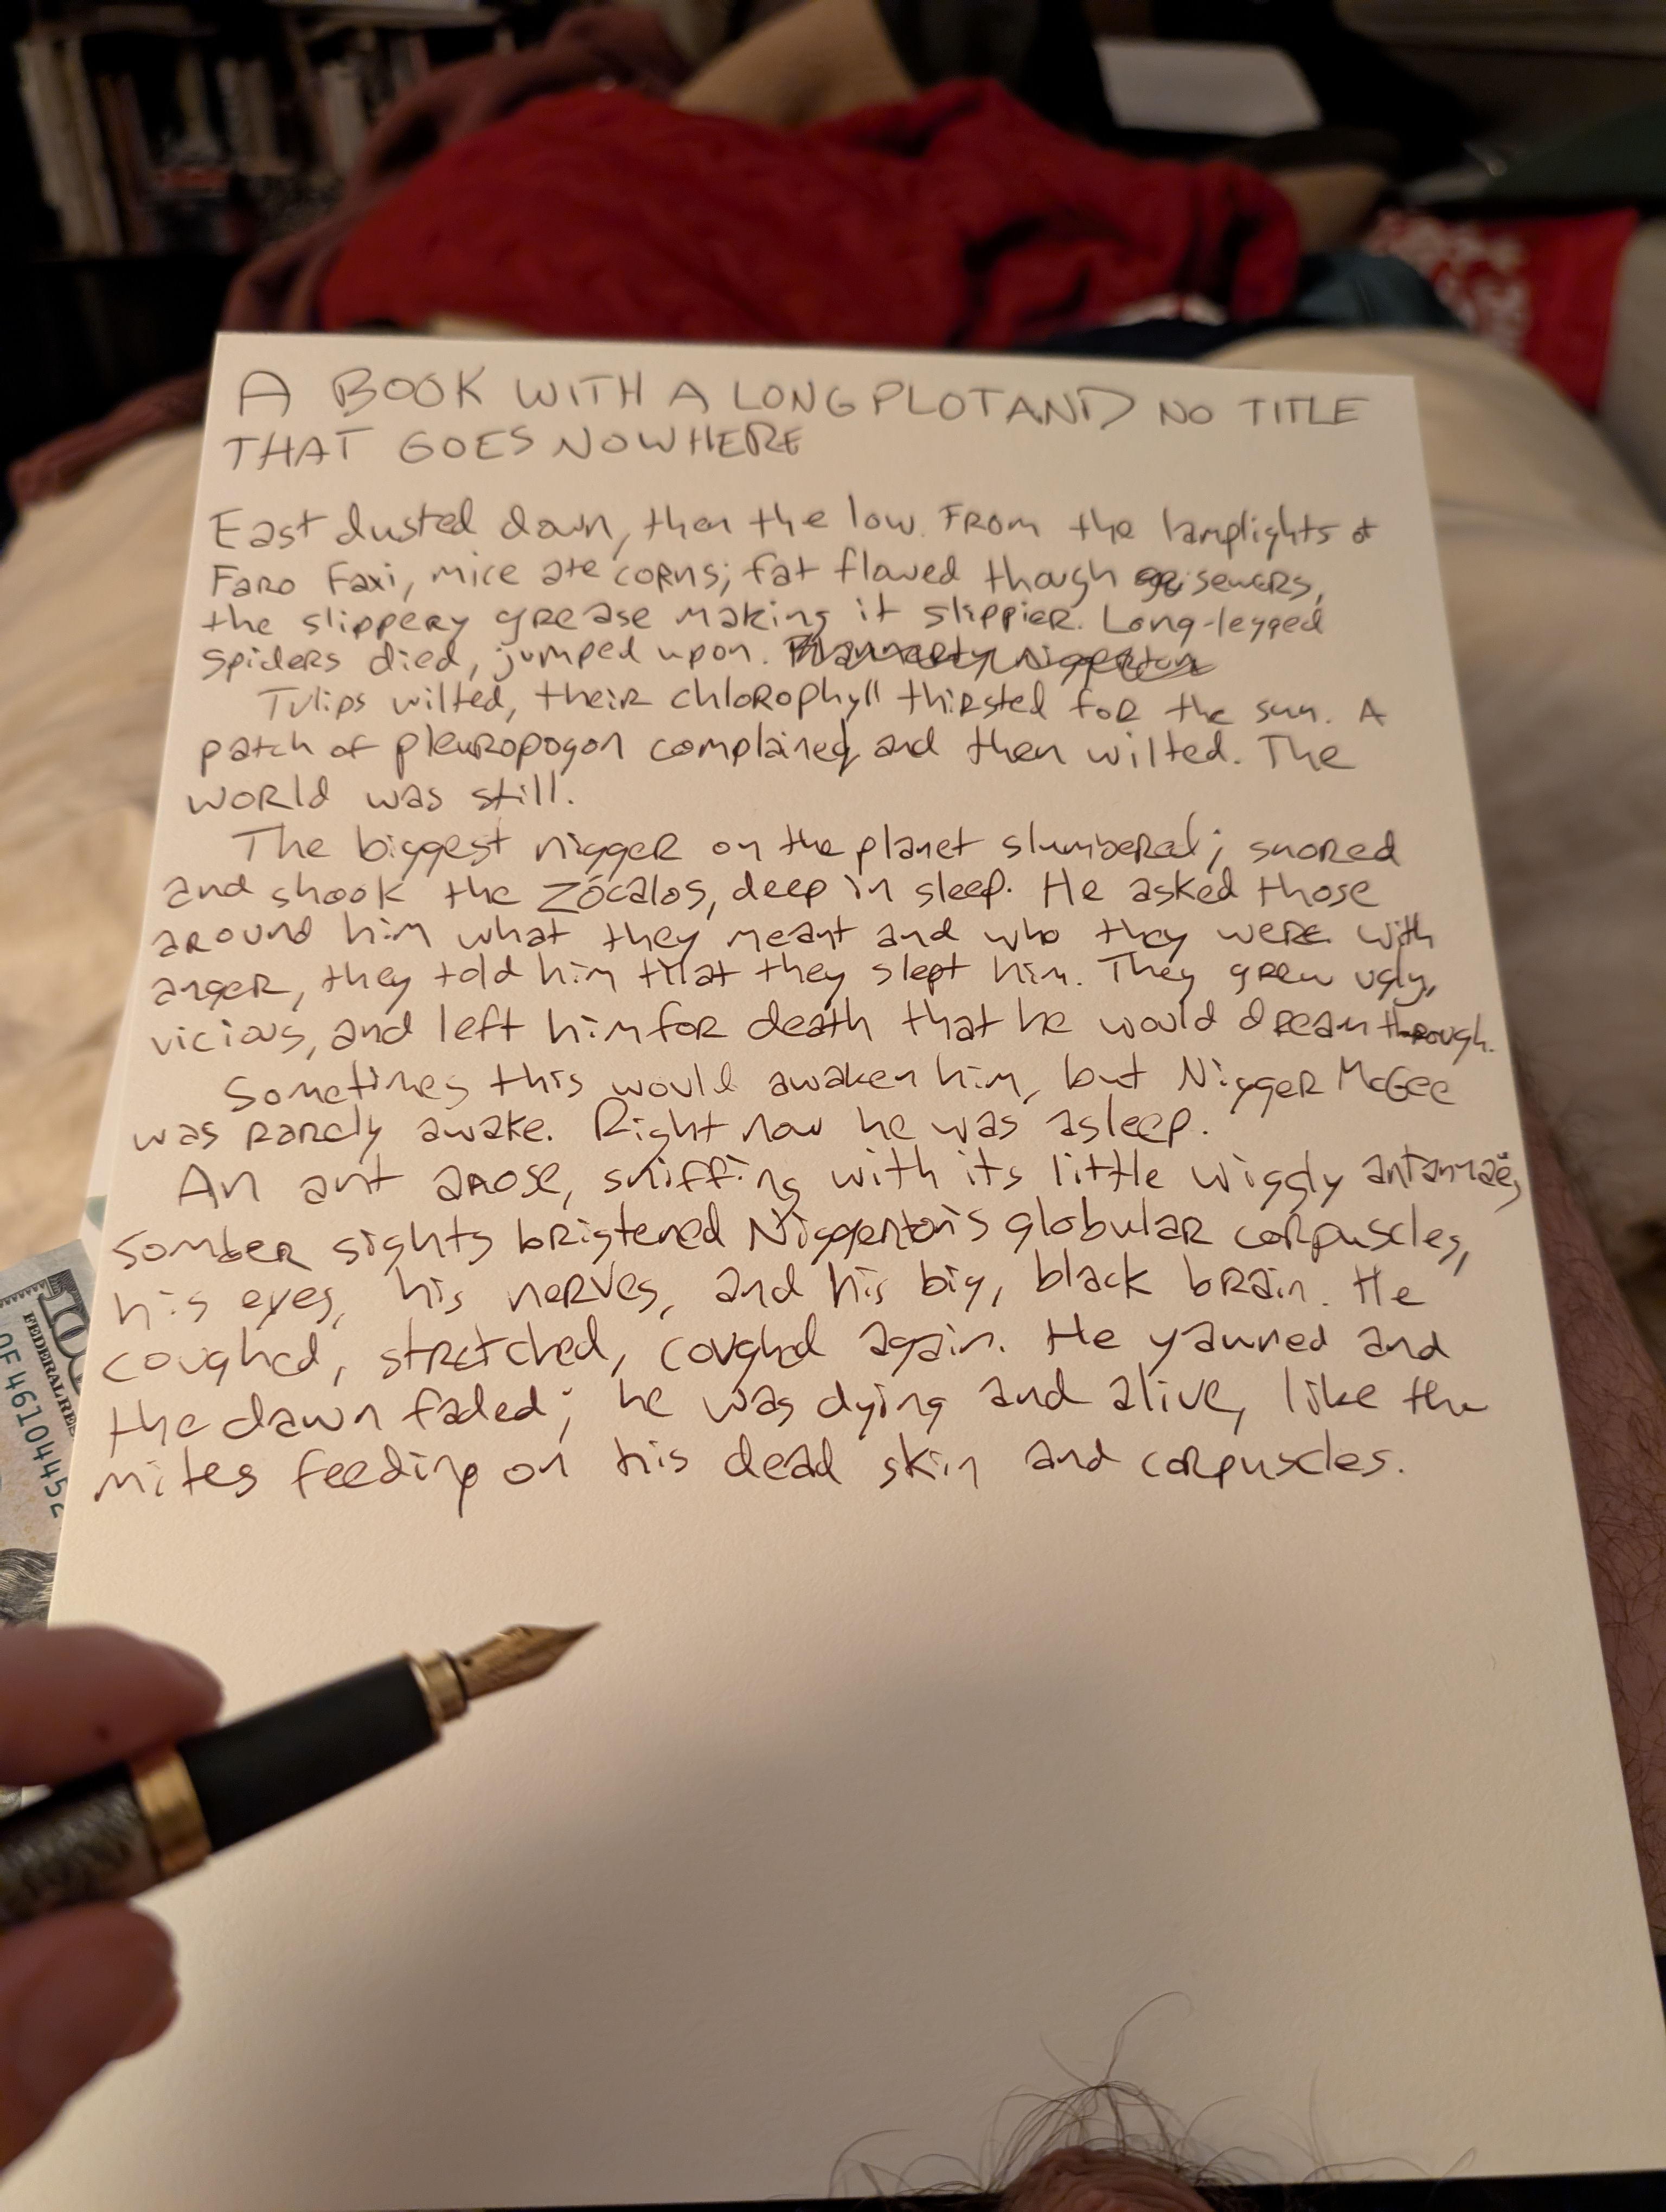 A BOOK WITH A LONG PLOT AND NO TITLE
THAT GOES NOWHERE
East dusted down, then the low. From the lamplights of
Faro Faxi, mice ate corns; fat flowed though sewers,
the slippery grease making it slippier. Long-legged
spiders died, jumped upon.
Tulips wilted, their chlorophyll thirsted for the sun. A
patch of pleuropogon complained, and then wilted. The
world was still.
The biggest nigger on the planet slumbered; snored
and shook the Zócalos, deep in sleep. He asked those
around him what they meant and who they were. With
anger, they told him that they slept him. They grew ugly,
vicious, and left him for death that he would dream through.
Sometimes this would awaken him, but Nigger McGee
was rarely awake. Right now he was asleep.
An ant arose, sniffing with its little wiggly antannaë,
somber sights bristened Niggerton's globular corpuscles,
his eyes, his nerves, and his big, black brain. He
coughed, stretched, coughed again. He yawned and
the dawn faded; he was dying and alive, like the
mites feeding on his dead skin and corpuscles.
100
FEDERAL RE
OF 4610445